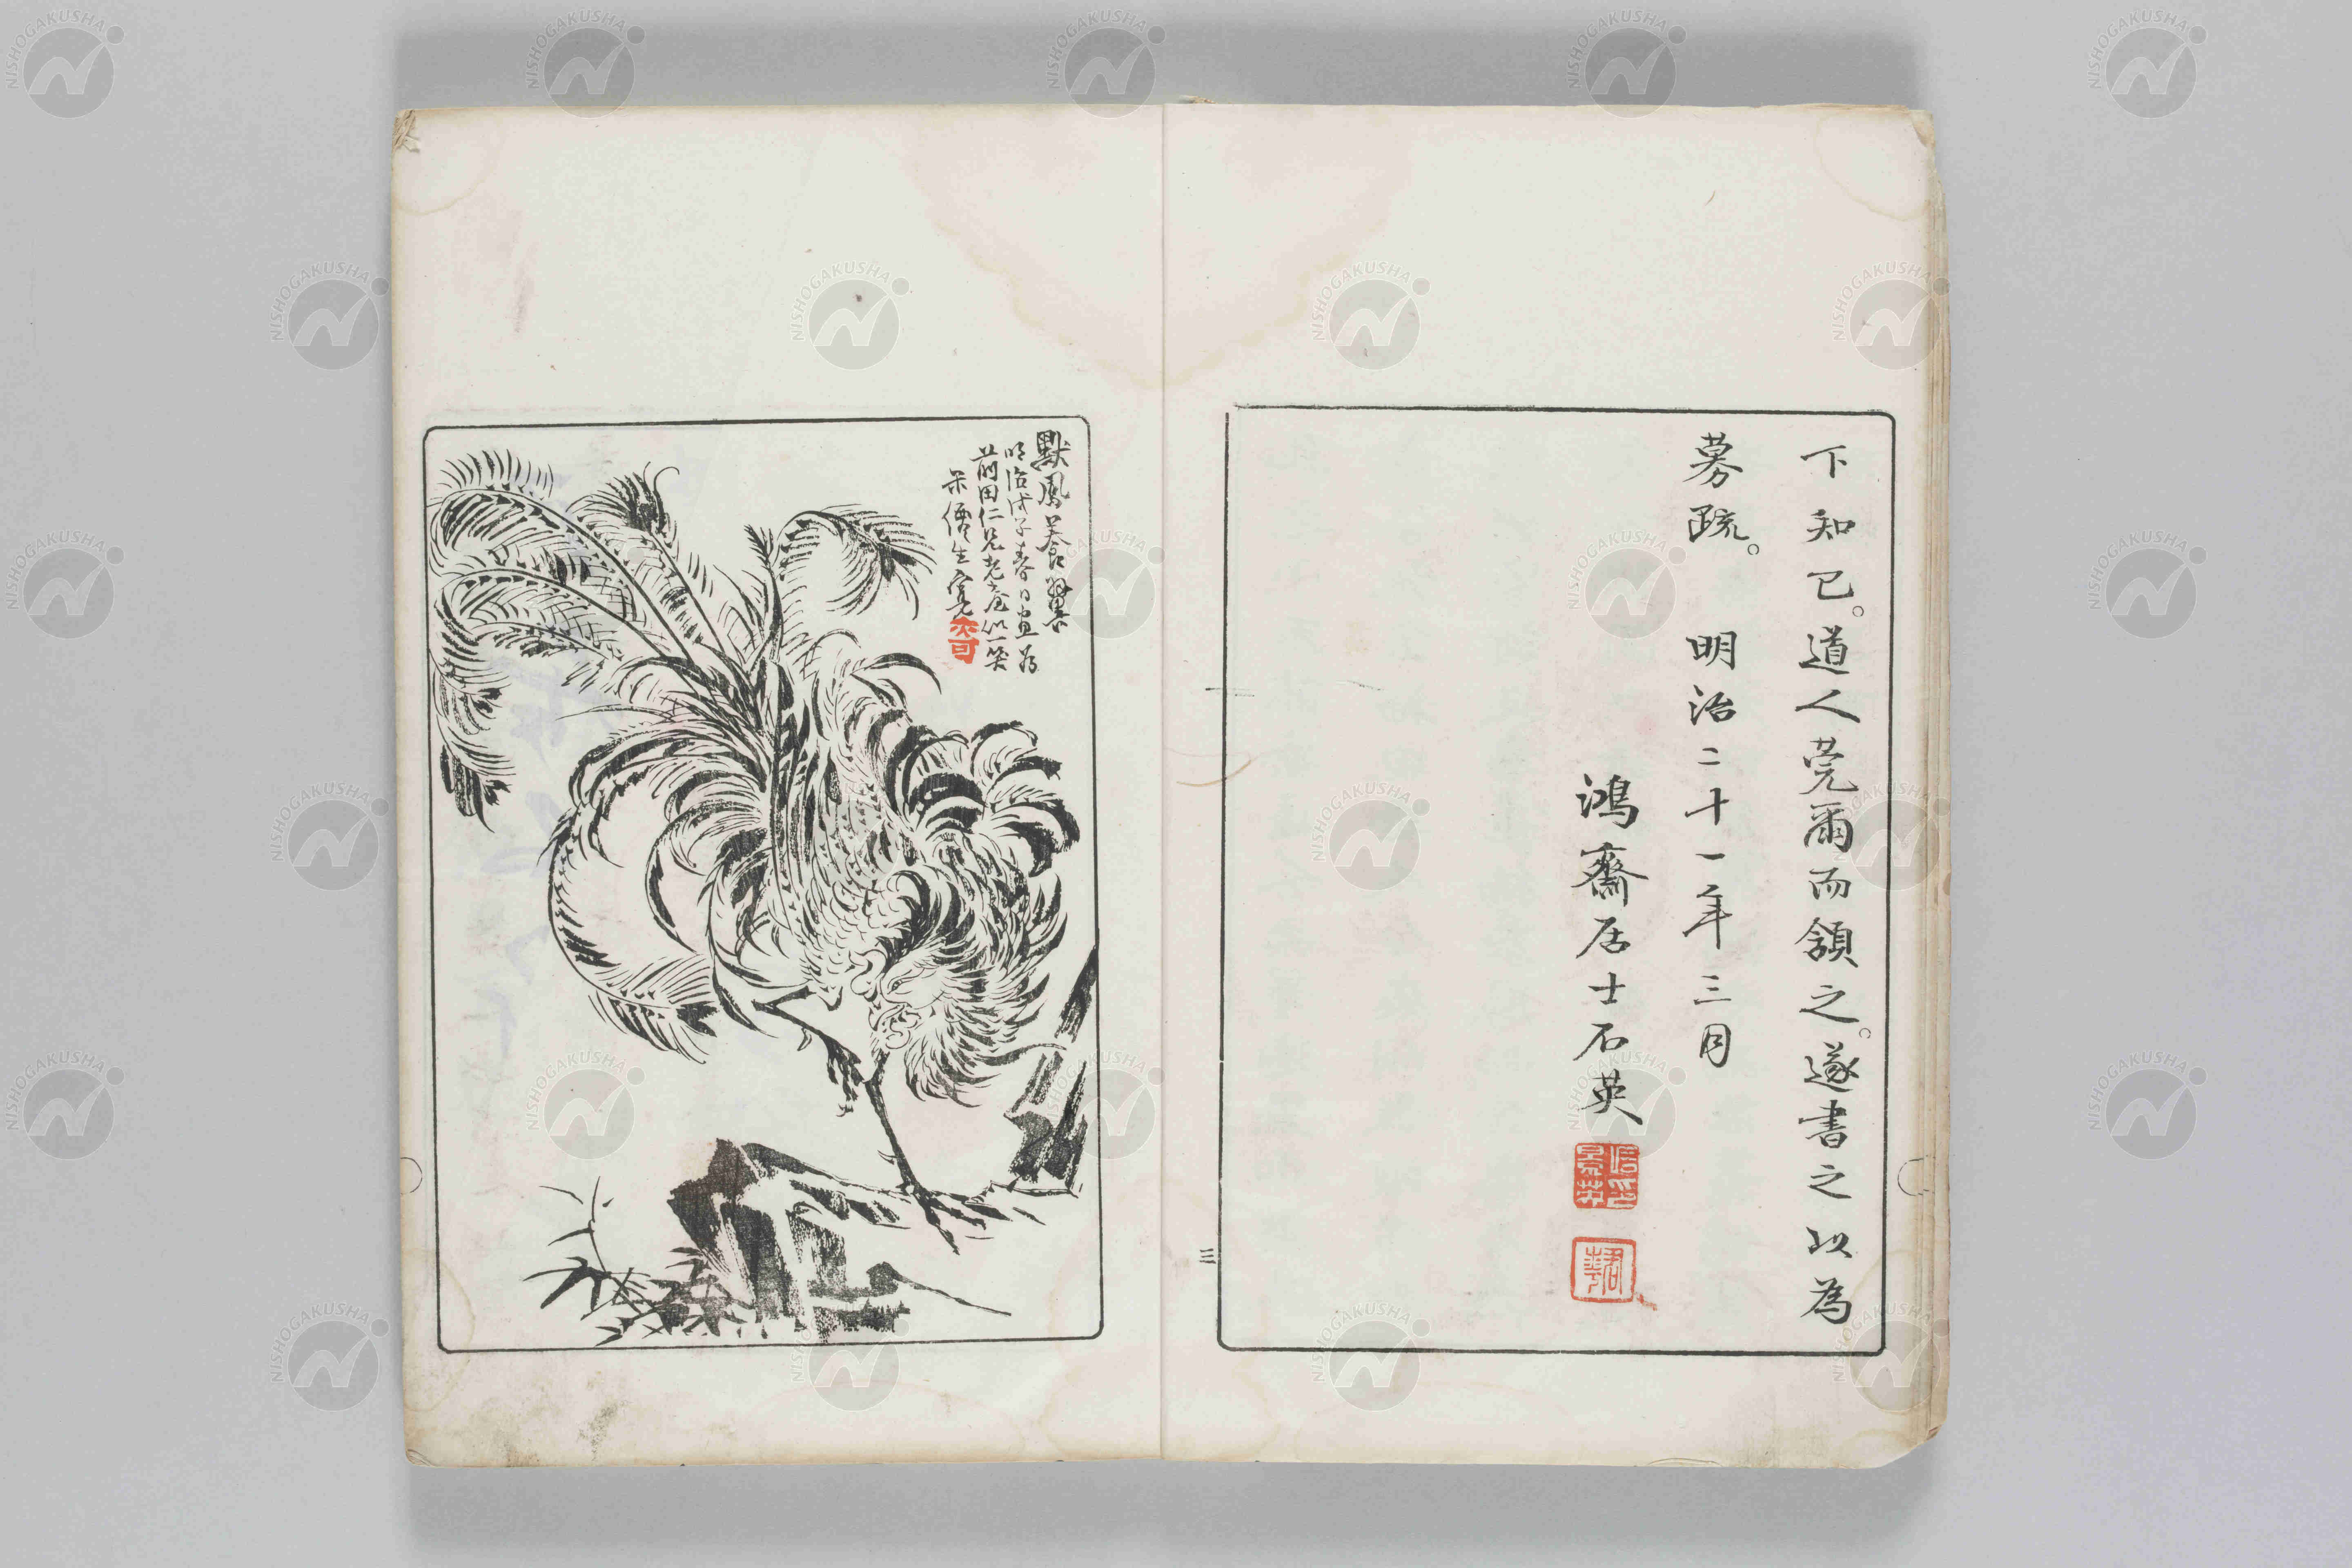 下知已。道人莞爾而頷之。遂書之以為
募疏。 明治二十一年三月
鴻齋居士石英
三
默鳳養翼
明治戊子春日画為
前田仁兄老台似一笑
NISHOGAKUSHA